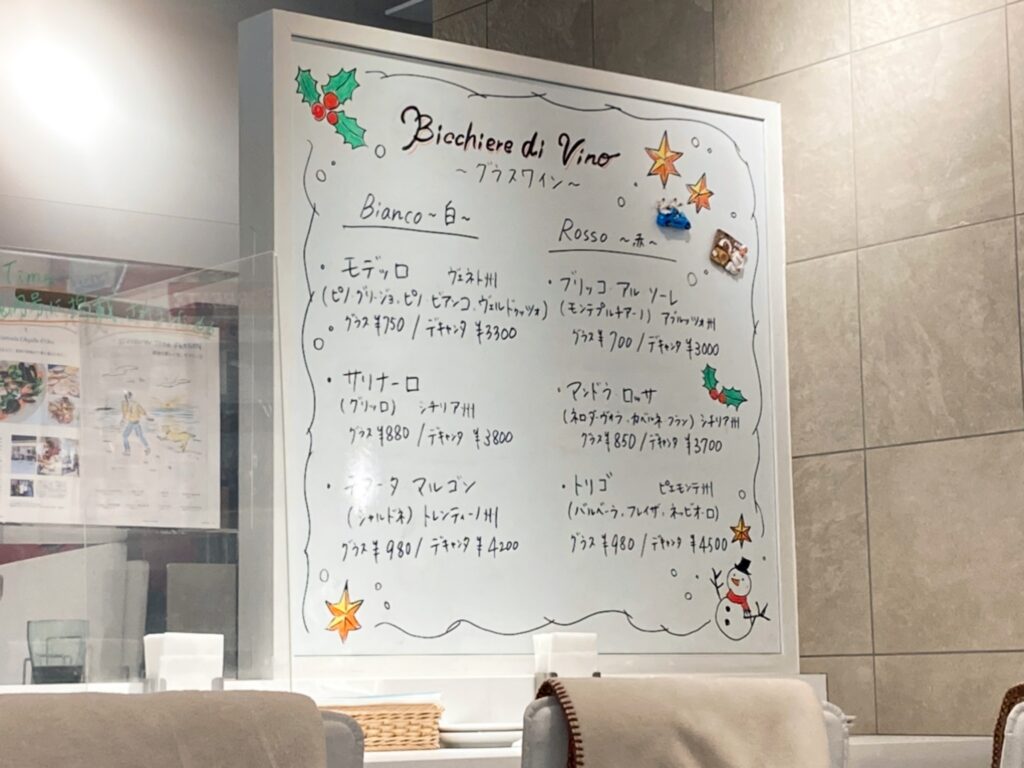 Bicchiere di Vino
~グラスワイン~
Bianco ~白~
・モデッロ ヴェネト州
(ピノ・グリージョ、ピノ・ビアンコ、ヴェルドゥッツォ)
グラス¥750 / デキャンタ ¥3300
・サリナーロ
(グリッロ) シチリア州
グラス¥880 / デキャンタ ¥3800
・テラータ マルゴン
(シャルドネ) トレンティーノ州
グラス¥980 / デキャンタ ¥4200
Rosso ~赤~
・ブリッコ アル ソーレ
(モンテプルチアーノ) アブルッツォ州
グラス¥700 / デキャンタ ¥3000
・アンドラ ロッサ
(ネロ・ダーヴォラ、カベルネ・フラン) シチリア州
グラス¥850 / デキャンタ ¥3700
・トリゴ ピエモンテ州
(バルベーラ、フレイザ、ネッビオーロ)
グラス¥980 / デキャンタ ¥4500